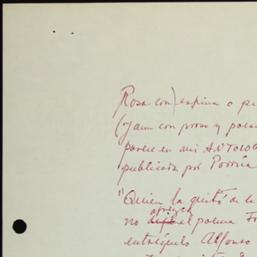 Rosa con) espina o pe
(y aun con prosa y poes
parece en mi ANTOLOG
publicada por Porrúa
"Quien la quitó de le
no agrega el poema Fo
entréguelo Alfonso